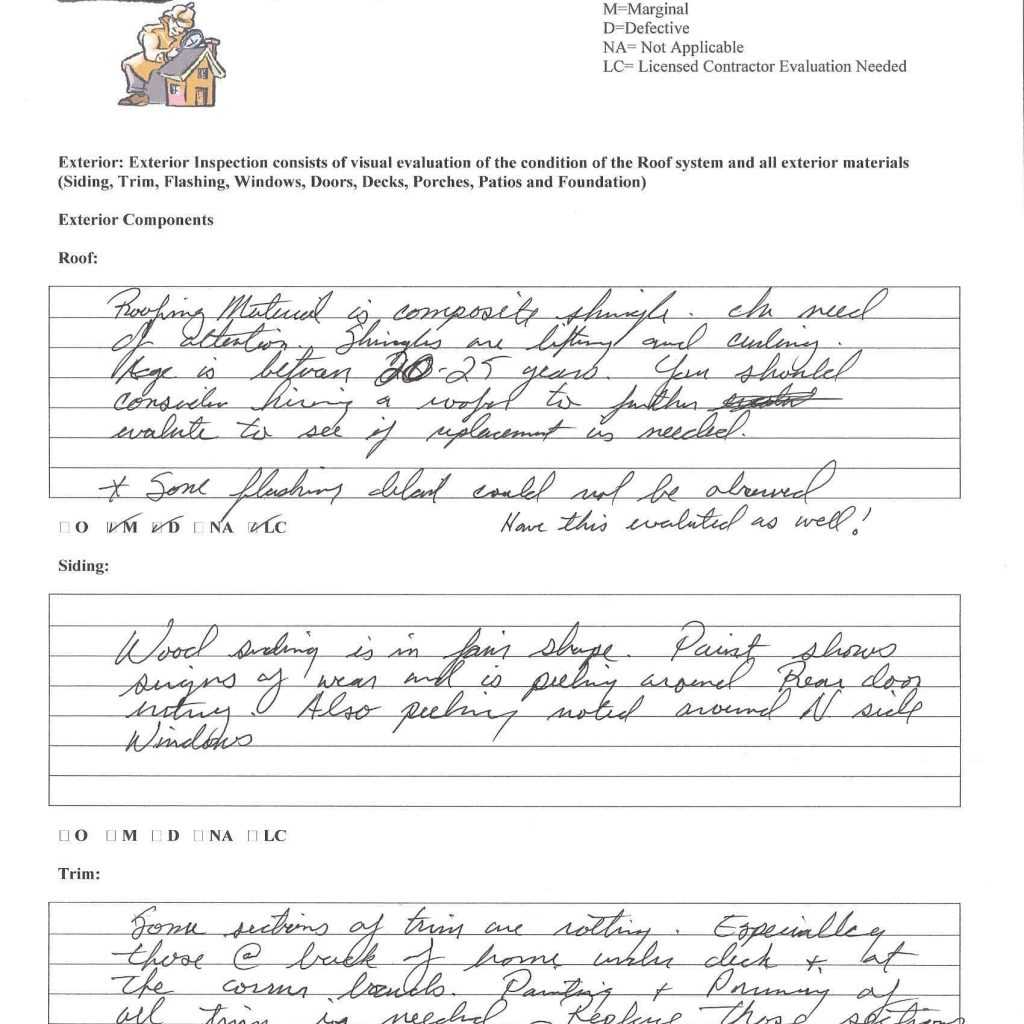 M=Marginal
D=Defective
NA= Not Applicable
LC= Licensed Contractor Evaluation Needed
Exterior: Exterior Inspection consists of visual evaluation of the condition of the Roof system and all exterior materials
(Siding, Trim, Flashing, Windows, Doors, Decks, Porches, Patios and Foundation)
Exterior Components
Roof:
Roofing Material is composite shingle. In need
of attention. Shingles are lifting and curling.
Age is between 20-25 years. You should
consider hiring a roofer to further
evalute to see if replacement is needed.
* Some flashing detail could not be observed
☐ O ☑ M ☑ D ☐ NA ☑ LC
Have this evaluted as well!
Siding:
Wood siding is in fair shape. Paint shows
signs of wear and is peeling around Rear door
. Also peeling noted around N side
Windows
☐ O ☐ M ☐ D ☐ NA ☐ LC
Trim:
Some sections of trim are rotting. Especially
those @ back of home under deck + at
the corner boards. Painting + Priming of
all trim is needed - Replace those sections